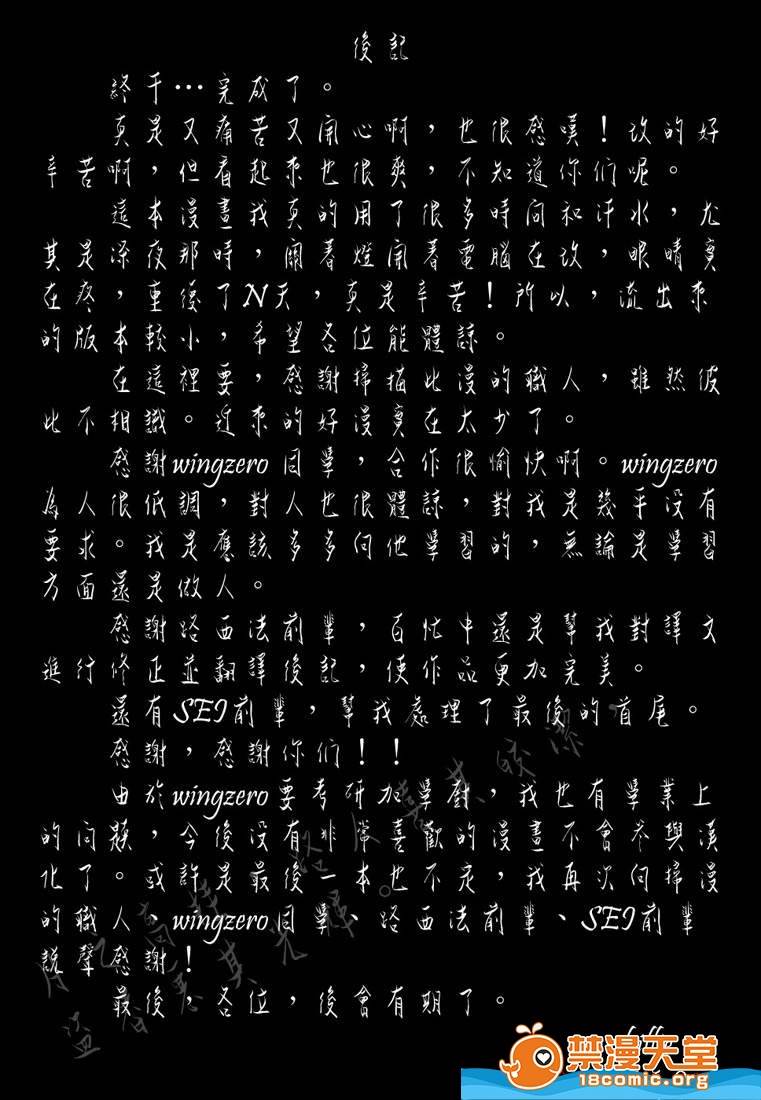 後記
終于…完成了。
真是又痛苦又開心啊，也很感嘆！改的好
辛苦啊，但看起來也很爽，不知道你们呢。
這本漫畫我真的用了很多時间和汗水，尤
其是深夜那時，關着燈開着電腦在改，眼睛實
在疼，重復了N天，真是辛苦！所以，流出來
的版本較小，希望各位能體諒。
在這裡要，感謝掃描此漫的職人，雖然彼
此不相識。近來的好漫實在太少了。
感謝wingzero同學，合作很愉快啊。wingzero
為人很低調，對人也很體諒，對我是幾乎没有
要求。我是應該多多向他學習的，無論是學習
方面還是做人。
感謝路西法前輩，百忙中還是幫我對譯文
進行修正並翻譯後記，使作品更加完美。
還有SEI前輩，幫我處理了最後的首尾。
感謝，感謝你们！！
由於wingzero要考研加學廚，我也有學業上
的问题，今後没有非常喜歡的漫畫不會参與漢
化了。或許是最後一本也不定，我再次向掃漫
的職人、wingzero同學、路西法前輩、SEI前輩
説聲感謝！
最後，各位，後會有期了。
禁漫天堂
18comic.org